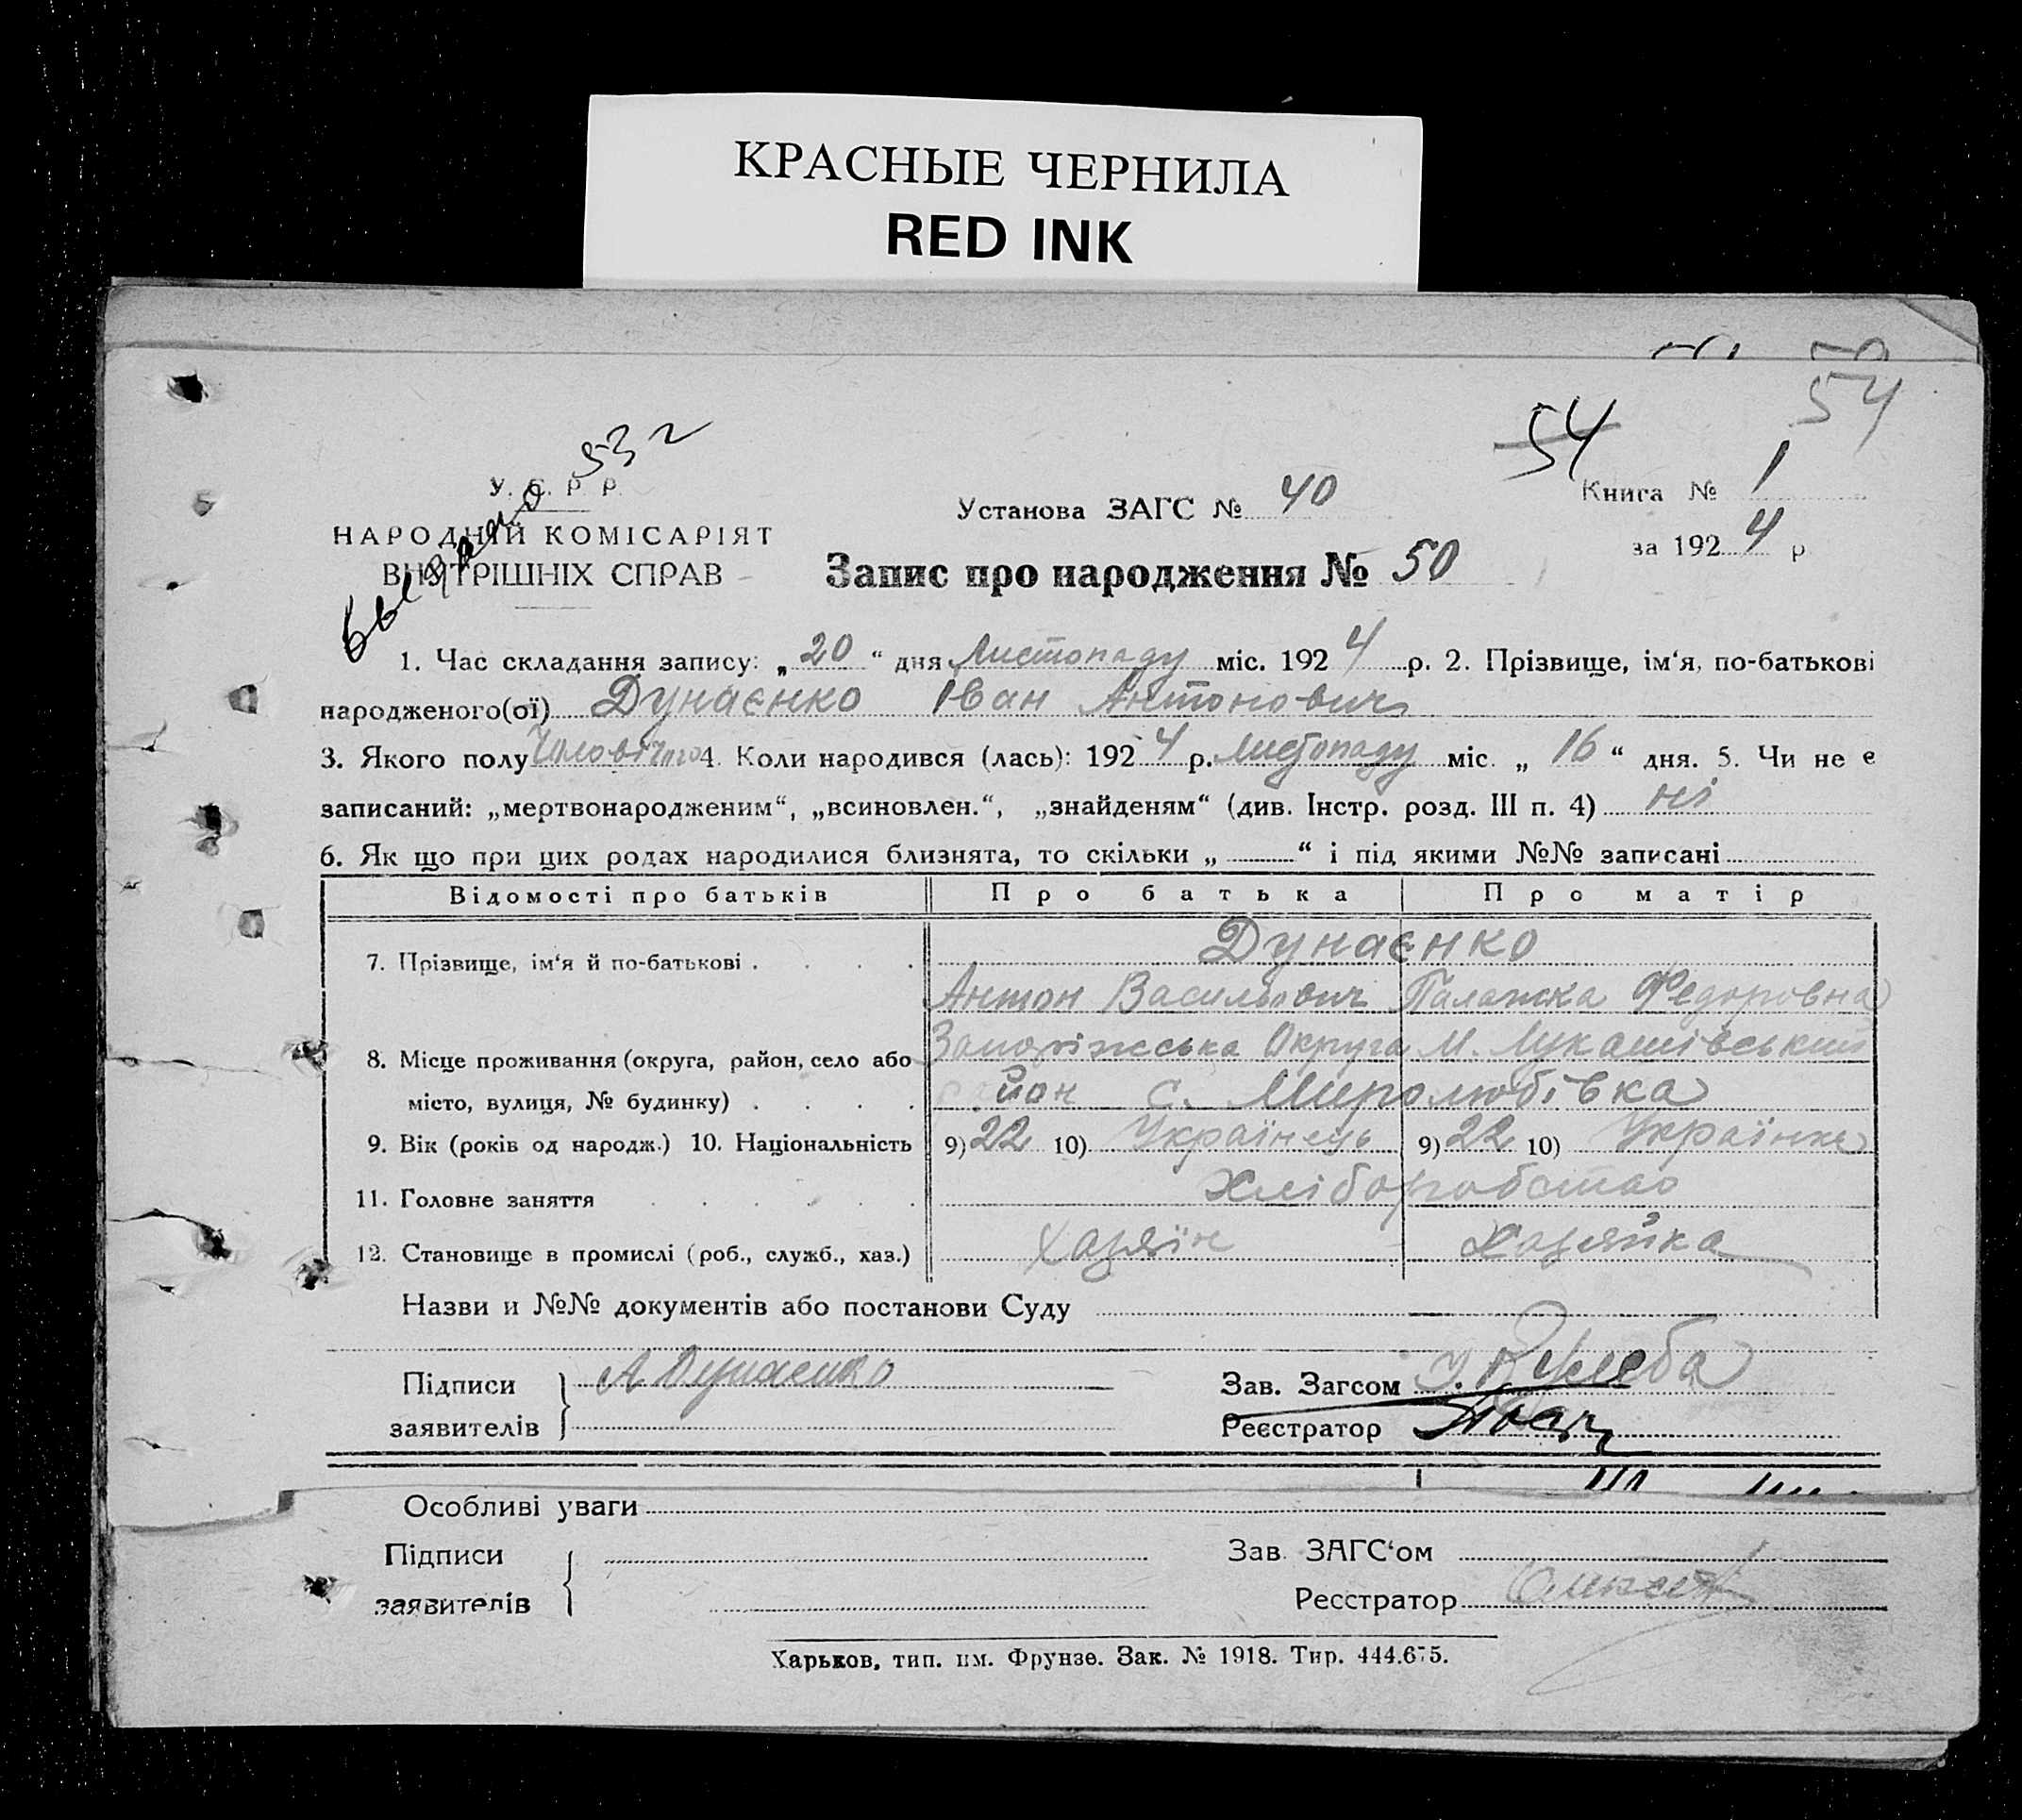 КРАСНЫЕ ЧЕРНИЛА
RED INK
54
54
532
У. С. Р. Р.
Установа ЗАГС № 40
Книга № 1
НАРОДНІЙ КОМІСАРІЯТ
за 1924 р
ВНУТРІШНІХ СПРАВ
Запис про народження № 50
1. Час складання запису: „20“ дня Листопаду міс. 1924 р. 2. Прізвище, ім‘я, по-батькові
народженого(ої) Дунаєнко Іван Антонович
3. Якого полу Чоловічого 4. Коли народився (лась): 1924 р. Листопаду міс. „16“ дня. 5. Чи не є
записаний: „мертвонародженим“, „всиновлен.“, „знайденям“ (див. Інстр. розд. III п. 4) ні
6. Як що при цих родах народилися близнята, то скільки „ “ і під якими №№ записані
Відомості про батьків Про батька Про матір
Дунаєнко
7. Прізвище, ім‘я й по-батькові
Антон Васильович Палажка Федоровна
8. Місце проживання (округа, район, село або Запоріжська Округа М. Лукашівський
місто, вулиця, № будинку) район с. Миролюбівка
9. Вік (років од народж.) 10. Національність 9) 22 10) Українець 9) 22 10) Українка
11. Головне заняття Хліборобство
12. Становище в промислі (роб., служб., хаз.) Хазяїн Хазяйка
Назви и №№ документів або постанови Суду
Підписи А Дунаенко Зав. Загсом
заявителів Реєстратор
Особливі уваги
Підписи Зав. ЗАГС‘ом
заявителів Реєстратор
Харьков, тип. им. Фрунзе. Зак. № 1918. Тир. 444.675.